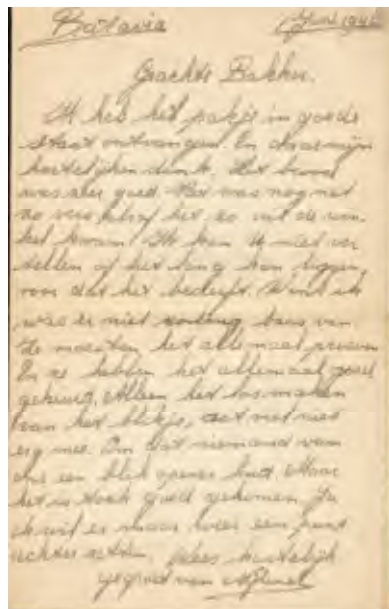 Batavia Juni 1948
Geachte Bakker.
Ik heb het pakje in goede
staat ontvangen. En daar mijn
hartelijken dank. Het brood
was zeer goed. Het was nog net
zo vers alsof het zo uit de win
kel kwam. Ik kan U niet ver
tellen of het lang kan liggen,
voor dat het bederft. Want ik
was er niet baas van
Ze moesten het allemaal proeven
En ze hebben het allemaal goed
gekeurd. Alleen het los maken
van het blikje, dat niet
erg mee. Om dat niemand van
ons een blik opener had. Maar
het is toch goed gekomen. Ja
ik wil er maar weer een punt
achter zetten. Wees hartelijk
gegroet van